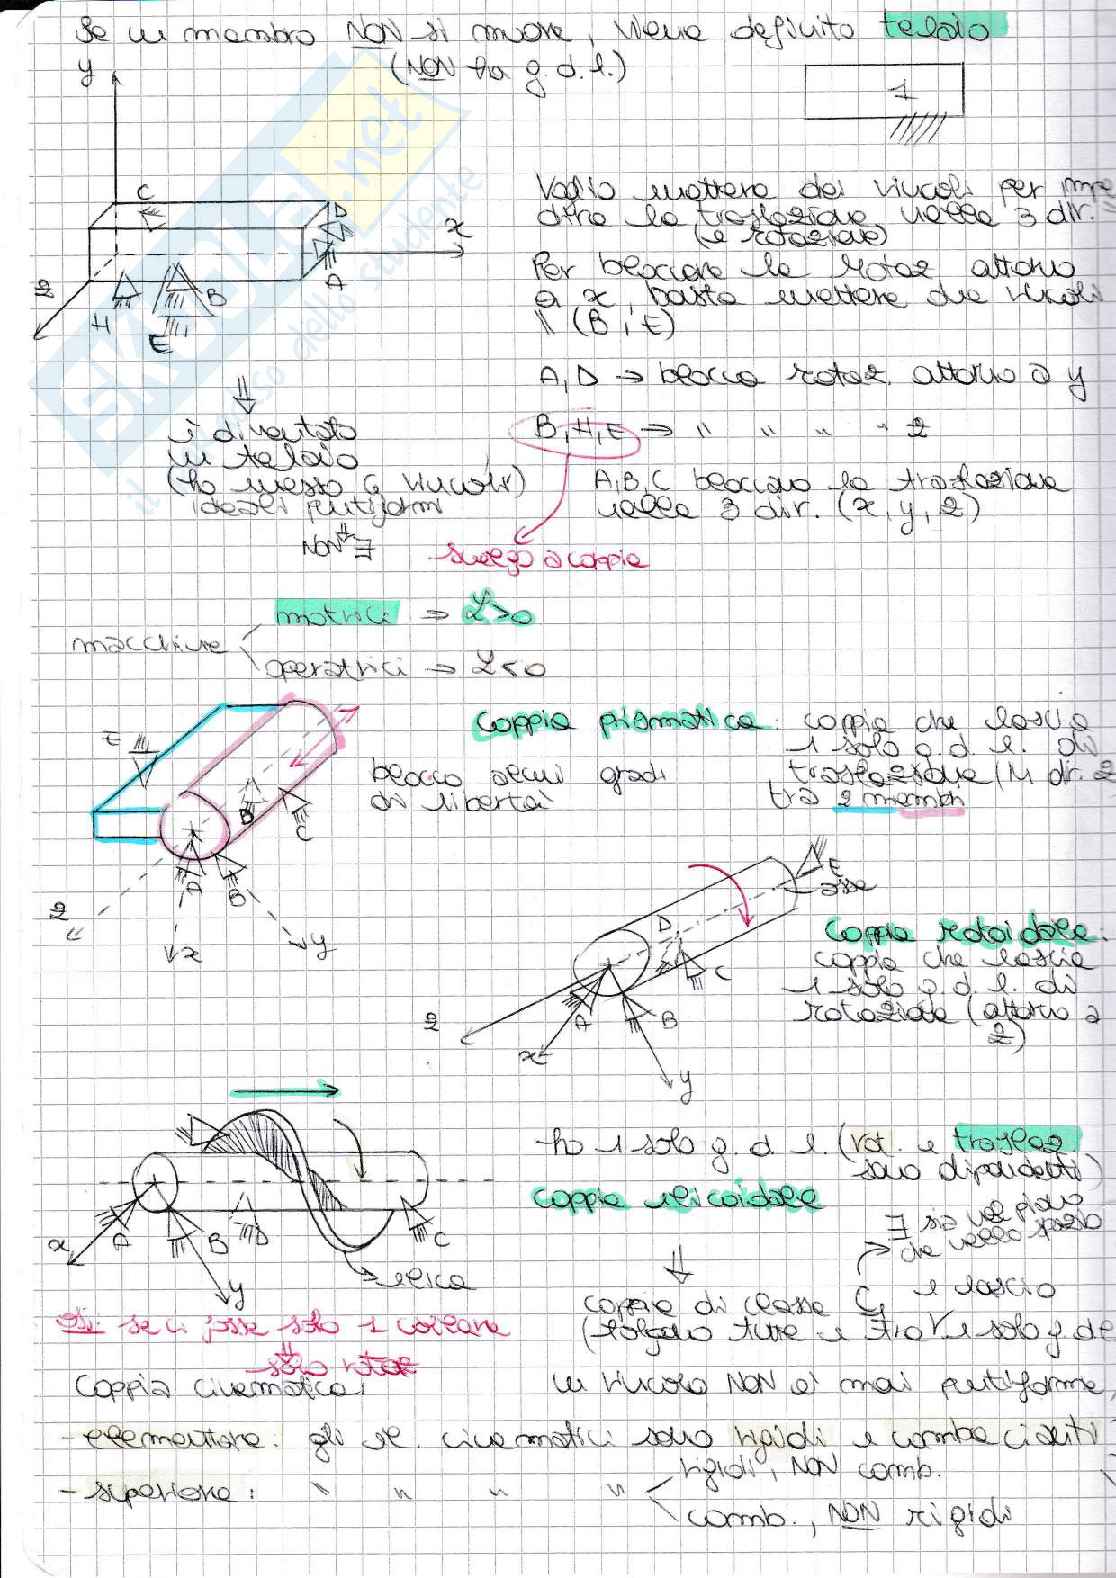 Se un membro NON si muove, viene definito telaio
(NON ha g.d.l.)
y
1
C
D
x
A
B
H
E
z
Voglio mettere dei vincoli per impe
dire la traslazione nelle 3 dir.
(e rotazione)
Per bloccare la rotaz attorno
a x, basta mettere due vincoli
∥ (B, E)
A, D → blocca rotaz. attorno a y
B, H, E → " " " " z
⇓
è diventato
un telaio
(ho messo 6 vincoli)
ideali puntiformi
NON ∃
A, B, C bloccano la traslazione
nelle 3 dir. (x, y, z)
svolgo a coppie
macchine
motrici ⇒ L>0
operatrici ⇒ L<0
E
D
C
A
B
z
x
y
blocco alcuni gradi
di libertà
Coppia prismatica: coppia che lascia
1 solo g.d.l. di
traslazione (in dir. z
tra 2 membri
E
asse
D
C
A
B
z
x
y
Coppia rotoidale:
coppia che lascia
1 solo g.d.l. di
rotazione (attorno a
z)
x
A
B
D
C
y
elica
ho 1 solo g.d.l. (rot. e traslaz
sono dipendenti)
coppia elicoidale
∃ sia nel piano
che nello spazio
⇓
coppia di classe C1 e lascio
(tolgono tutte e 1 solo g.d.l
Es: se ci fosse solo 1 collare
⇓
solo rotaz
Coppia cinematica:
un vincolo NON è mai puntiforme,
- elementare: gli el. cinematici sono rigidi e combacianti
- superiore: " " " "
rigidi, NON comb.
comb., NON rigidi
SKUOLA.net
il amico dello studente